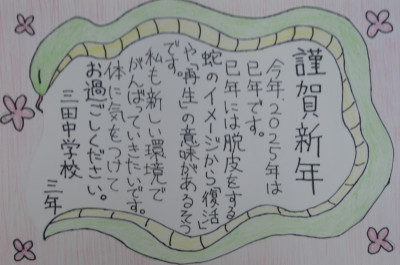 謹賀新年
今年、2025年は
巳年です。
巳年には脱皮をする
蛇のイメージから「復活」
や「再生」の意味があるそう
です。
私も新しい環境で
がんばっていきたいです。
体に気をつけて
お過ごしください。
三田中学校
三年